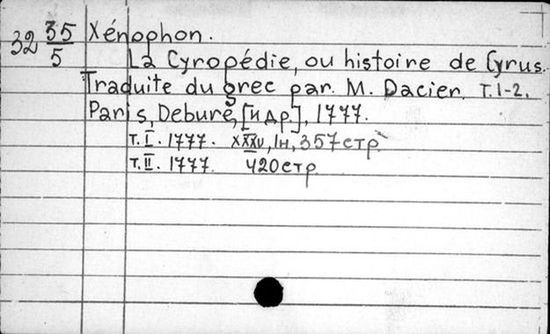 32 35/5 Xénophon.
La Cyropédie, ou histoire de Cyrus.
Traduite du grec par M. Dacier. T.1-2.
Paris, Debure, [и др.], 1777.
т. I. 1777. XXXV, 1н, 357 стр
т. II. 1777. 420 стр